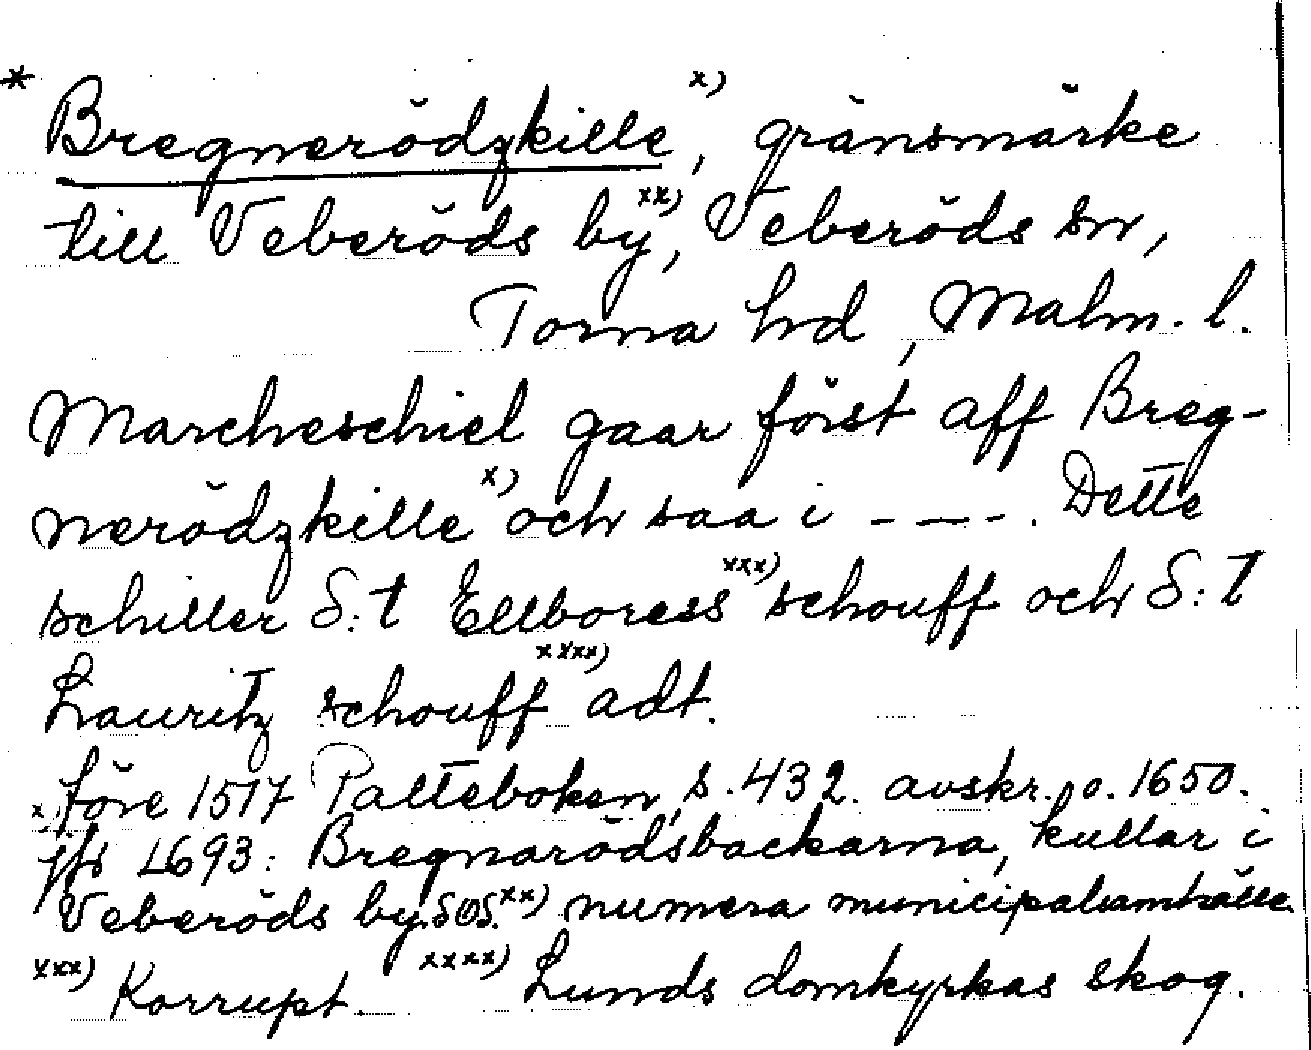 * Bregnerödzkille x), gränsmärke
till Veberöds by xx), Veberöds sn,
Torna hd, Malm. l.
Marcheschiel gaar först aff Breg-
nerödzkille x) och saa i - - - -. Dette
schiller S:t Ellboress xxx) schouff och S:t
Lauritz schouff xxxx) adt.
före 1517 Palteboken, s. 432. avskr. o. 1650.
x) jfr 1693: Bregnarödsbackarna, kullar i
Veberöds by. SOS. xx) numera municipalsamhälle
xxx) Korrupt. xxxx) Lunds domkyrkas skog.